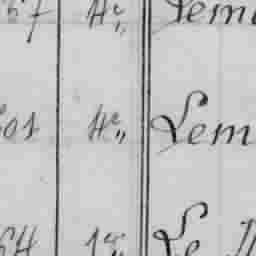 57 4e Lem
501 4e Lem
64 1e Le